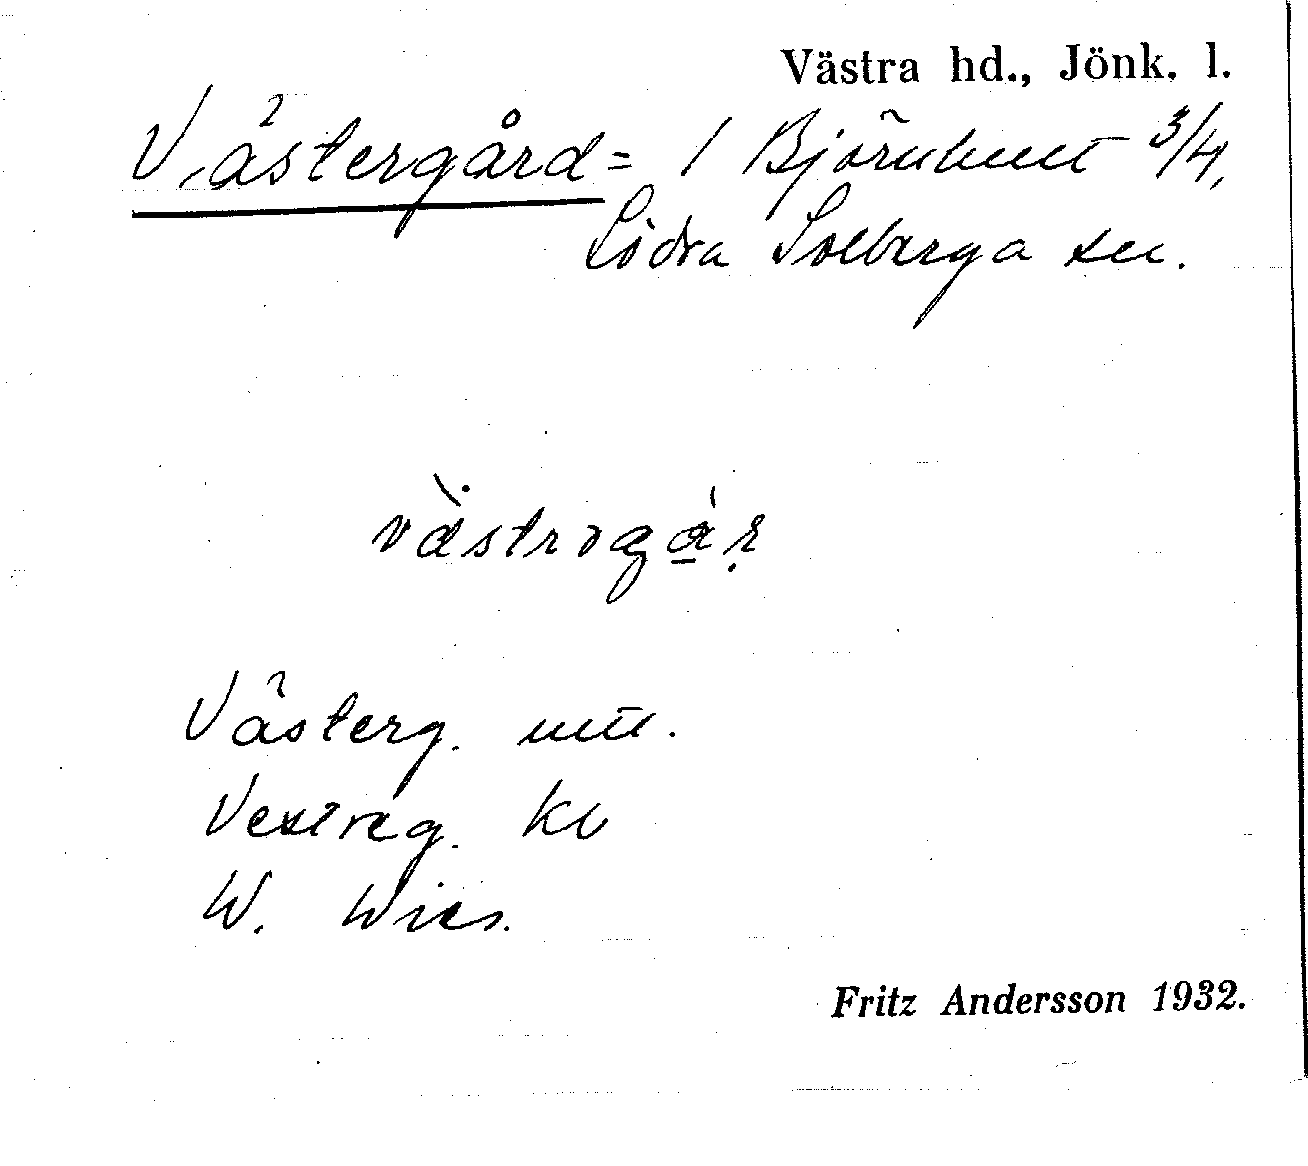 Västra hd., Jönk. l.
Västergård = 1 Björnhult 3/4,
Södra Solberga sn.
västrogår
Västerg. mtl.
Vestreg. Kb
W. Wies.
Fritz Andersson 1932.